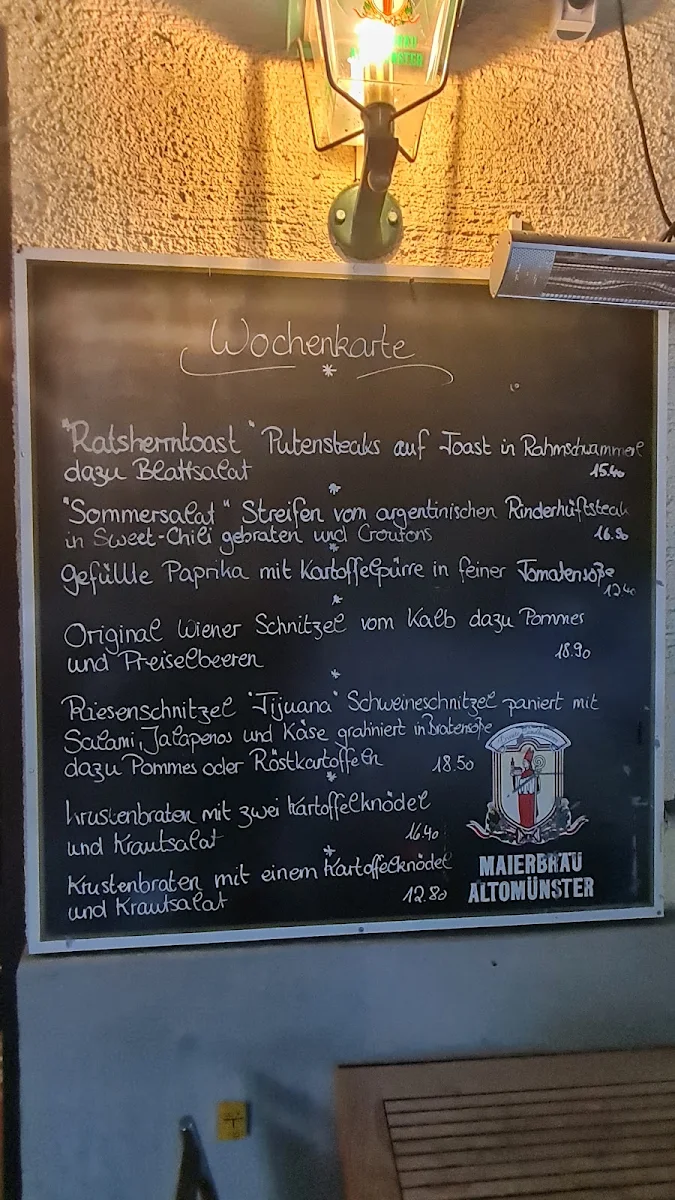 BRÄU
ALTOMÜNSTER
Wochenkarte
"Ratsherrntoast" Putensteaks auf Toast in Rahmschwammerl
dazu Blattsalat 15.40
"Sommersalat" Streifen vom argentinischen Rinderhüftsteak
in Sweet-Chili gebraten und Croutons 16.90
Gefüllte Paprika mit Kartoffelpürre in feiner Tomatensoße
12.40
Original Wiener Schnitzel vom Kalb dazu Pommes
und Preiselbeeren 18.90
Riesenschnitzel "Tijuana" Schweineschnitzel paniert mit
Salami, Jalapenos und Käse gratiniert in Bratensoße
dazu Pommes oder Röstkartoffeln 18.50
Krustenbraten mit zwei Kartoffelknödel
und Krautsalat 16.40
Krustenbraten mit einem Kartoffelknödel
und Krautsalat 12.80
MAIERBRÄU
ALTOMÜNSTER